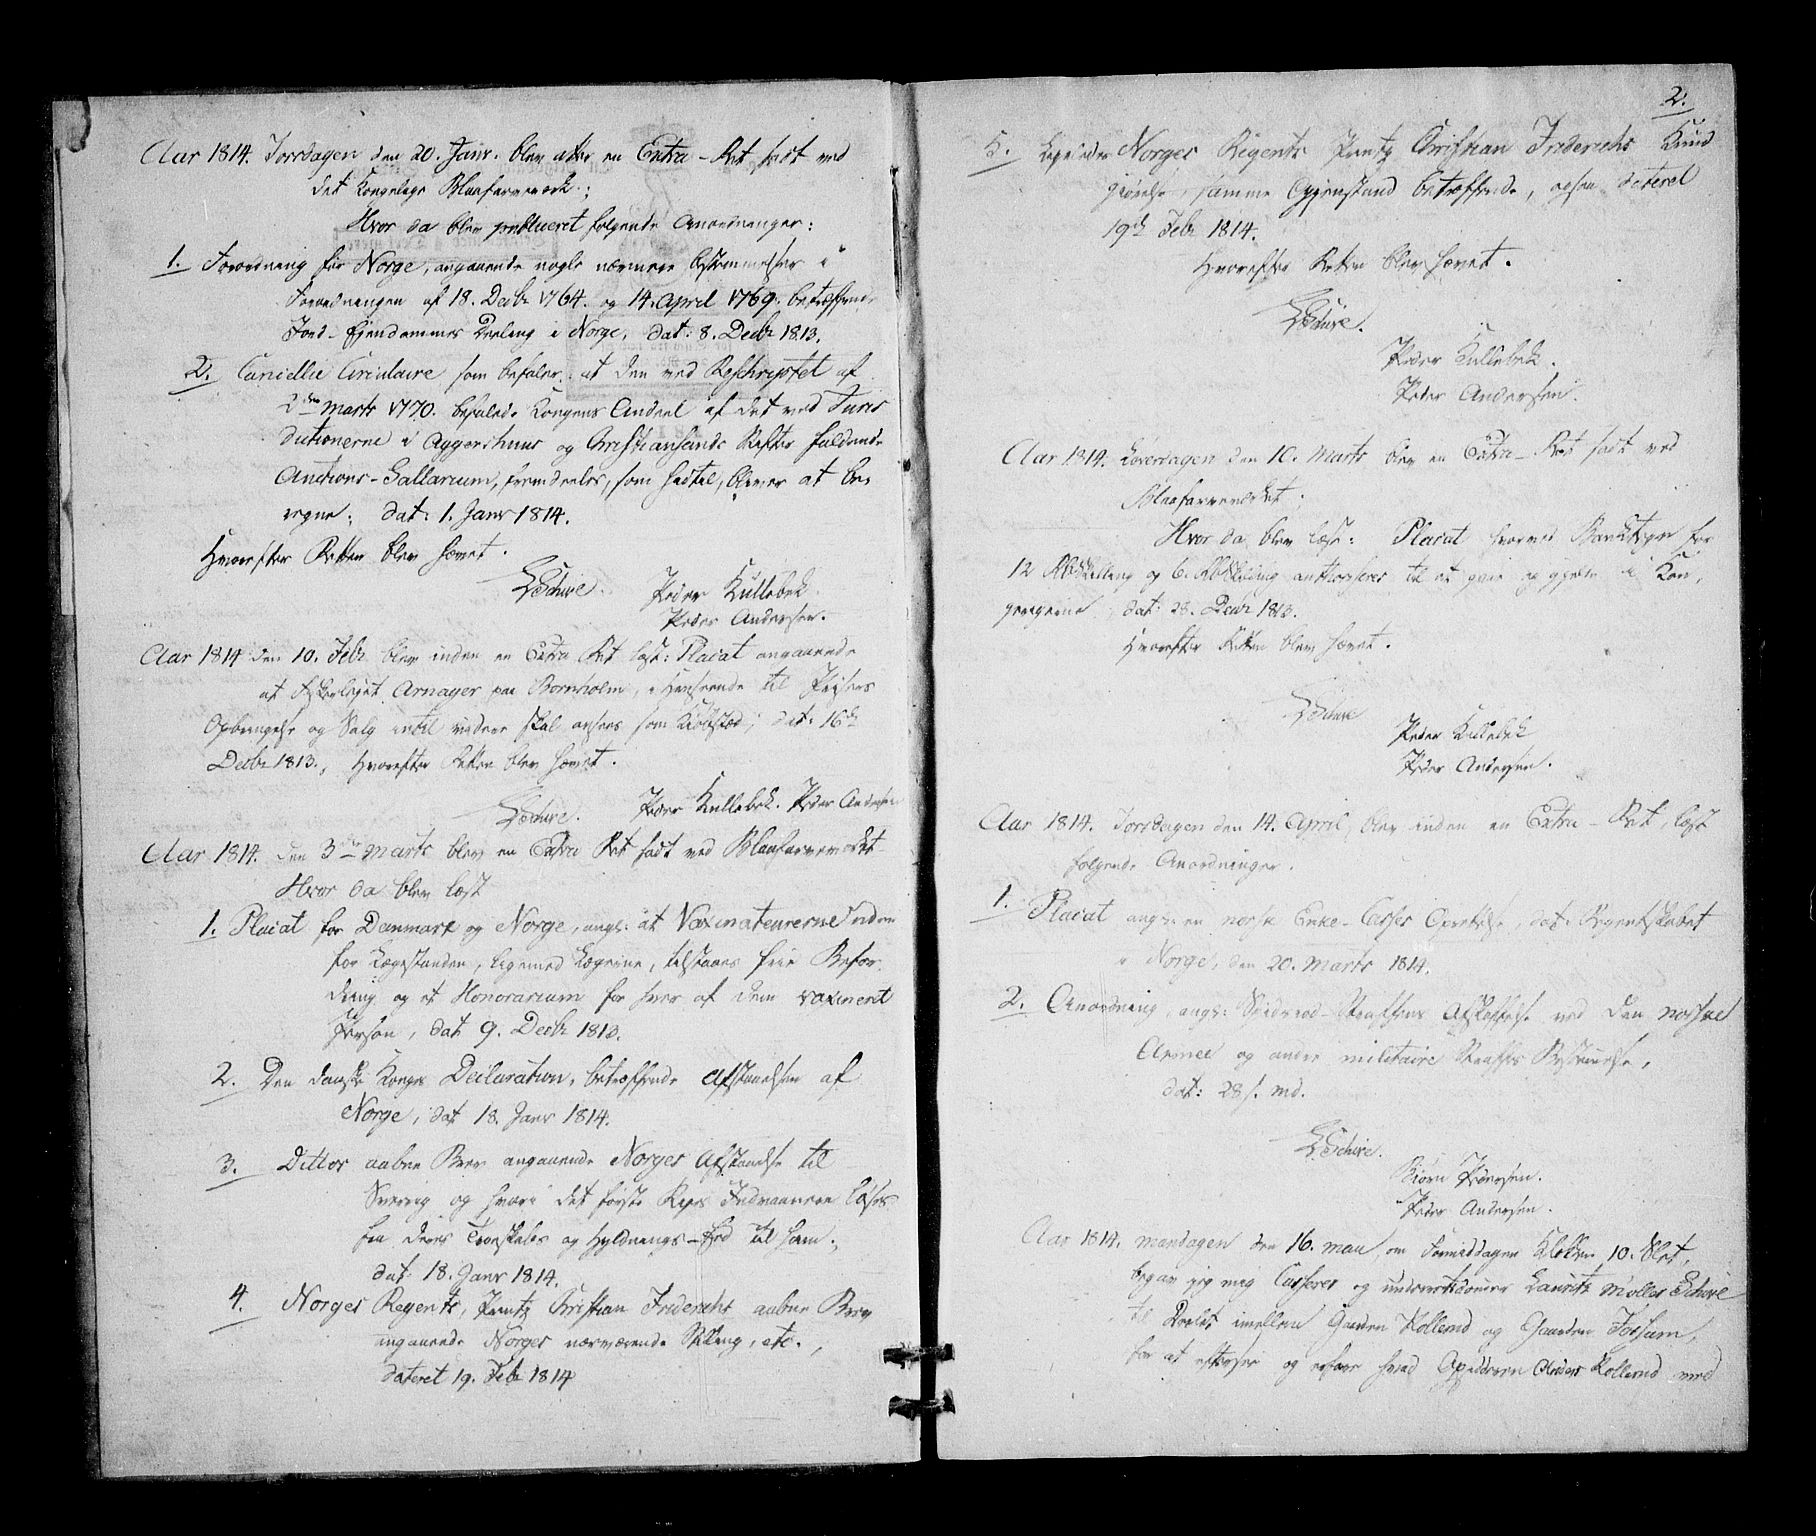 Aar 1814. Torsdagen den 20. Janr. blev atter en Extra-Ret sadt ved
det Kongelige Blaafarveverk;
Hvor da blev publiceret følgende Anordninger:
1. Forordning for Norge, angaaende nogle nærmere bestemmelser i
Forordningen af 18. Decbr 1764. og 14. April 1769. betræffende
Jord-Eiendommes Deeling i Norge, dat: 8. Decbr 1813.
2. Cancellie Circulaire som befaler, at den ved Reschriptet af
2den Marts 1770. befalede Kongens Andeel af det ved Juris
dictionerne i Aggershuus og Christiansands Stifter faldende
Auctions-Sallarium, fremdeeles, som hidtil, bliver at be-
regne; dat: 1. Janr 1814.
Hvorefter Retten blev hævet.
LSchive. Peder Kullebek.
Peder Andersen.
Aar 1814 den 10. Febr blev inden en Extra Ret læst: Placat angaaende
at Fiskerlejet Arnager paa Bornholm, i Henseende til Prisers
Opbringelse og Salg indtil videre skal ansees som Kiøbsted; dat: 16de
Decbr 1813., Hvorefter Retten blev hævet.
LSchive. Peder Kullebek. Peder Andersen
Aar 1814. den 3die Marts blev en Extra Ret sadt ved Blaafarveverket
Hvor da blev læst
1. Placat for Danmark og Norge, ang: at Vaxinateurerne uden
for Lægestanden, ligemed Lægerne, tilstaaes frie Befor-
dring og et Honorarium for hver af dem vaxineret
Person, dat 9. Decbr 1813.
2. Den danske Konges Declaration, betræffende Afstaaelsen af
Norge, dat 18. Janr 1814.
3. Dittos aabne Brev angaaende Norges Afstaaelse til
Sverrig og hvori det første Riges Indvaanere løses
fra deres Troeskabs og Hyldnings-Eed til ham;
dat: 18. Janr 1814.
4. Norges Regents, Printz Christian Friderichs aabne Brev
angaaende Norges nærværende Stilling, etc.,
dateret 19. Febr 1814
2.
5. Ligeledes Norges Regents Printz Christian Friderichs Kund
giørelse, samme Gjenstand betræffende, ogsaa dateret
19de Febr 1814.
Hvorefter Retten blev hævet.
LSchive.
Peder Kullebek.
Peder Andersen.
Aar 1814. Løverdagen den 10. Marts blev en Extra-Ret sadt ved
Blaafarveverket;
Hvor da blev læst: Placat hvorved Banktegn for
12 Rbskilling og 6. Rbskilling authoriseres til at gaae og gjelde i Kon-
gerigerne, dat: 23. Decbr 1813.
Hvorefter Retten blev hævet.
LSchive
Peder Kullebek
Peder Andersen.
Aar 1814. Torsdagen den 14. April, blev inden en Extra-Ret, læst
følgende Anordninger.
1. Placat ang: en norsk Enke-Casses Oprettelse, dat: Regentskabet
i Norge, den 20. Marts 1814.
2. Anordning, ang: Spidsrod-Straffens Afskaffelse ved den norske
Armee og andre militaire Straffes Bestemmelse,
dat: 28. s. md.
LSchive.
Biørn Pedersen.
Peder Andersen.
Aar 1814. Mandagen den 16. Maii, om Formiddagen Klokken 10. Slet,
begav jeg mig Casserer og Lauritz Møller Schive
til Deelet imellem Gaarden Kollerud og Gaarden Fossum,
for at eftersee og erfare hvad Opsidderen Kollerud med